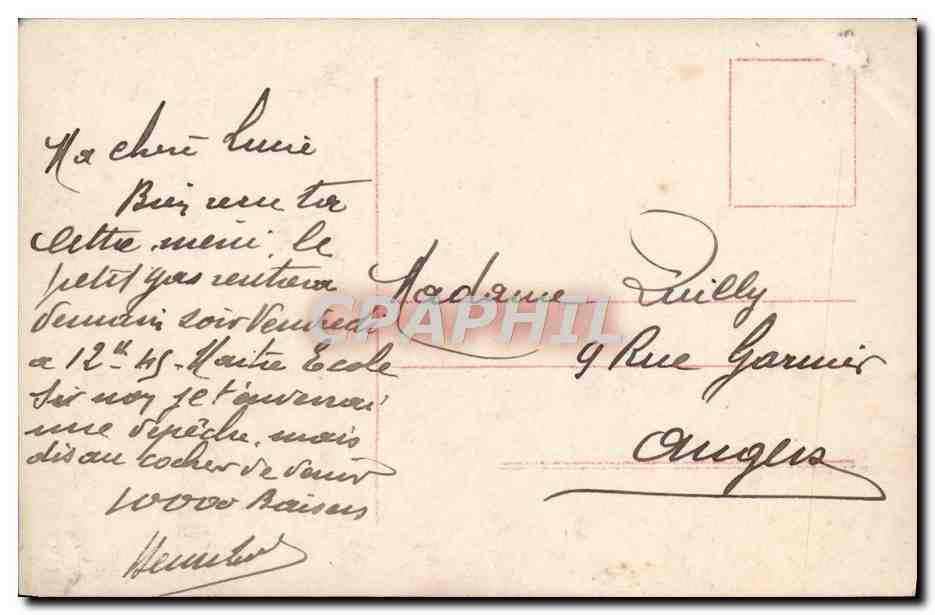 Ma chère Lucie
Bien reçu ta
lettre, merci, le
petit gas rentrera
demain soir Vendredi
a 12h 45 - Maitre Ecole
Si non je t'enverrai
une dépêche, mais
dis au cocher de venir
10000 Baisers
Madame Quilly
9 Rue Garnier
Angers
CPAPHIL